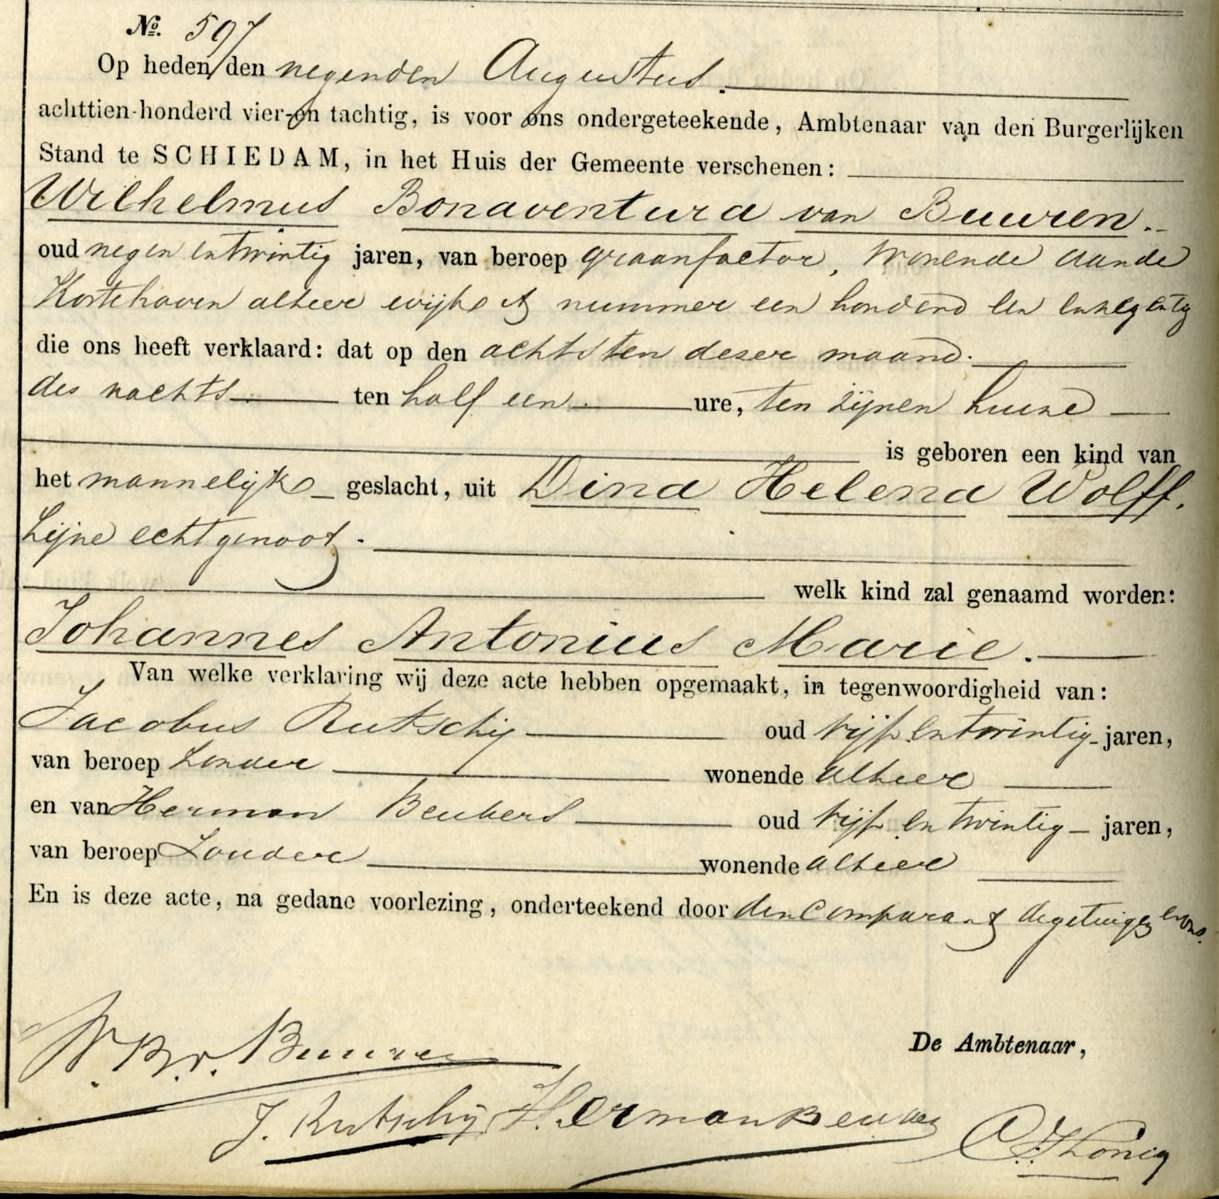 No. 597
Op heden den negenden Augustus.
achttien-honderd vier-en tachtig, is voor ons ondergeteekende, Ambtenaar van den Burgerlijken
Stand te SCHIEDAM, in het Huis der Gemeente verschenen:
Wilhelmus Bonaventura van Buuren.
oud negen en twintig jaren, van beroep graanfactor, wonende aan de
Kortehaven alhier wijk nummer een honderd en negentig
die ons heeft verklaard: dat op den achtsten deser maand.
des nachts ten half een ure, ten zijnen huize
is geboren een kind van
het mannelijk geslacht, uit Dina Helena Wolff,
zijne echtgenoot.
welk kind zal genaamd worden:
Johannes Antonius Marie.
Van welke verklaring wij deze acte hebben opgemaakt, in tegenwoordigheid van:
Jacobus Rutschij oud vijf en twintig jaren,
van beroep zonder wonende alhier
en van Herman Beukers oud vijf en twintig jaren,
van beroep Zonder wonende alhier
En is deze acte, na gedane voorlezing, onderteekend door den Comparant de getuigen en ons.
W. B. v. Buuren
De Ambtenaar,
J. Rutschij Herman Beukers